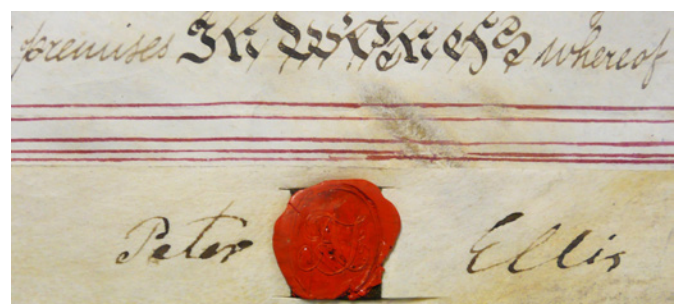 premises In Witness whereof
Peter Ellis